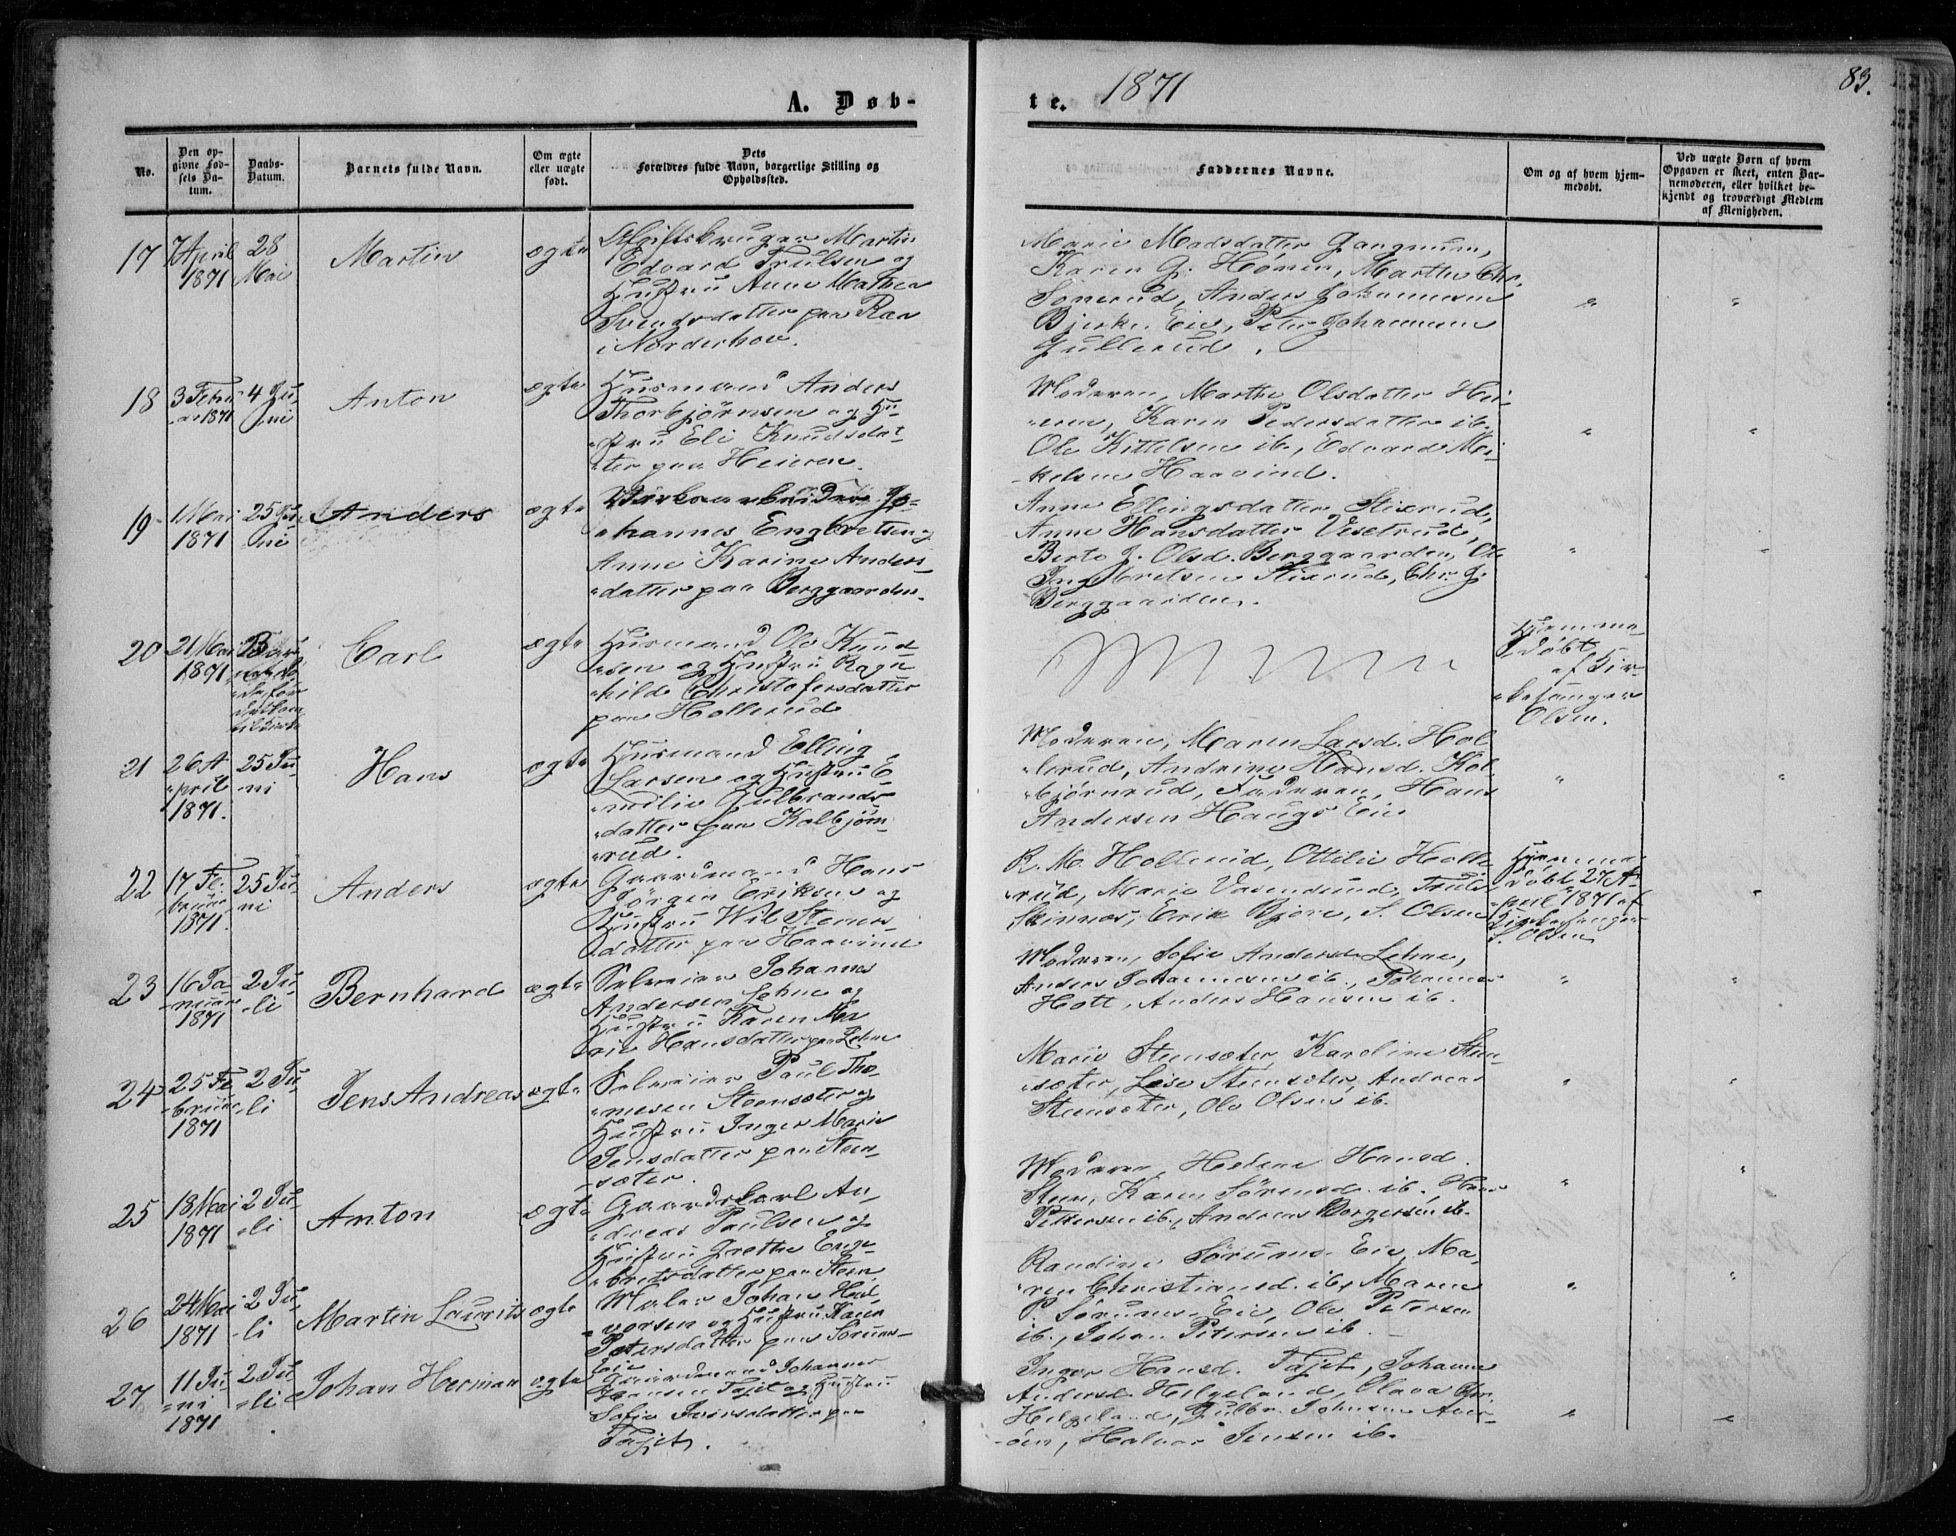 1871
83.
A. Døb-
te.
No.
Den op-
givne Fød-
sels Da-
tum.
Daabs-
Datum.
Barnets fulde Navn.
Om ægte
eller uægte
født.
Dets
Forældres fulde Navn, borgerlige Stilling og
Opholdssted.
Faddernes Navne.
Om og af hvem hjem-
medøbt.
Ved uægte Børn af hvem
Opgaven er skeet, enten Bar-
nemoderen, eller hvilket be-
kjendt og troværdigt Medlem
af Menigheden.
17
7 April
1871
28
Mai
Martin
ægte
Afgiftsbruger Martin
Edvard Trulsen og
Hustru Anne Mathea
Svendsdatter paa Raa
i Norderhov.
Marie Madsdatter Gangnum,
Karen G. Hønen, Marthe Chr.
Sønerud, Anders Johannesen
Bjerke Eie, Peter Johannesen
Gullerud.
18
3 Febru
ar 1871
4 Ju-
ni
Anton
ægte
Husmand Anders
Thorbjørnsen og Hu-
stru Eli Knudsdat-
ter paa Heieren.
Moderen, Marthe Olsdatter Hei-
eren, Karen Pedersdatter ib.
Ole Kittelsen ib., Edvard Mi-
kelsen Haavind.
19
1 Mai
1871
25 Ju-
ni
Anders
ægte
Jo-
hannes Engbretsen og
Anne Karine Anders-
datter paa Berggaarden.
Anne Ellingsdatter Stixrud,
Anne Hansdatter Vesetrud,
Berte G. Olsd. Berggaarden, Ole
Ingebretsen Stixrud, Chr. G.
Berggaarden.
20
21 Mai
1871
Carl
ægte
Husmand Ole Knud-
sen og Hustru Ragn-
hilde Christofersdatter
paa Hollerud
Hjemme-
døbt
af Kir-
kesanger
Olsen.
21
26 A-
pril
1871.
25 Ju-
ni
Hans
ægte
Husmand Elling
Larsen og Hustru E-
midlie Gulbrands-
datter paa Kolbjørn-
rud.
Moderen, Maren Larsd. Hol-
lerud, Andrine Hansd. Kol-
bjørnrud, Faderen, Hans
Andersen Haugs Eie
22
17 Fe-
bruar
1871.
25 Ju-
ni
Anders
ægte
Gaardmand Hans
Jørgen Eriksen og
Hustru Wil Steners-
datter paa Haavind
R. M. Hollerud, Ottilie Holle-
rud, Marie Vasendrud, Truls
Skinnes, Erik Bjøre, S. Olsen
Hjemme-
døbt 27 A-
pril 1871 af
Kirkesanger
S. Olsen
23
16 Ja-
nuar
1871
2 Ju-
li
Bernhard
ægte
Selveier Johannes
Andersen Lehne og
Hustru Karen Ma-
rie Hansdatter paa Lehne
Moderen, Sofie Andersd. Lehne,
Anders Johannesen ib., Johannes
Holt, Anders Hansen ib.
24
25 Fe-
bruar
1871
2 Ju-
li
Jens Andreas
ægte
Selveier Paul Tho-
mesen Steensæter og
Hustru Inger Marie
Jensdatter paa Steen-
sæter.
Marie Steensæter, Karoline Steen-
sæter, Lise Steensæter, Andreas
Steensæter, Ole Olsen ib.
25
18 Mai
1871
2 Ju-
li
Anton
ægte
Gaardskarl An-
dreas Paulsen og
Hustru Grethe Enge-
bretsdatter paa Steen
Moderen, Helene Hansd.
Steen, Karen Sørensd. ib., Hans
Pettersen ib., Andreas Borgersen ib.
26
24 Mai
1871
2 Ju-
li
Martin Laurits
ægte
Maler Johan Hal-
vorsen og Hustru Karen
Petersdatter paa Sørums-
Eie
Randine Sørums Eie, Ma-
ren Christiansd. ib., Maren
P. Sørums Eie, Ole Petersen
ib., Johan Petersen ib.
27
11 Ju-
ni
1871
2 Ju-
li
Johan Herman
ægte
Gaardmand Johannes
Hansen Fajet og Hustru
Sofie Iversdatter paa
Fajet.
Inger Hansd. Fajet, Johanne
Andersd. Helgeland, Olava Chr.
Helgeland, Gulbr. Johnsen Aver-
øen, Halvor Jensen ib.